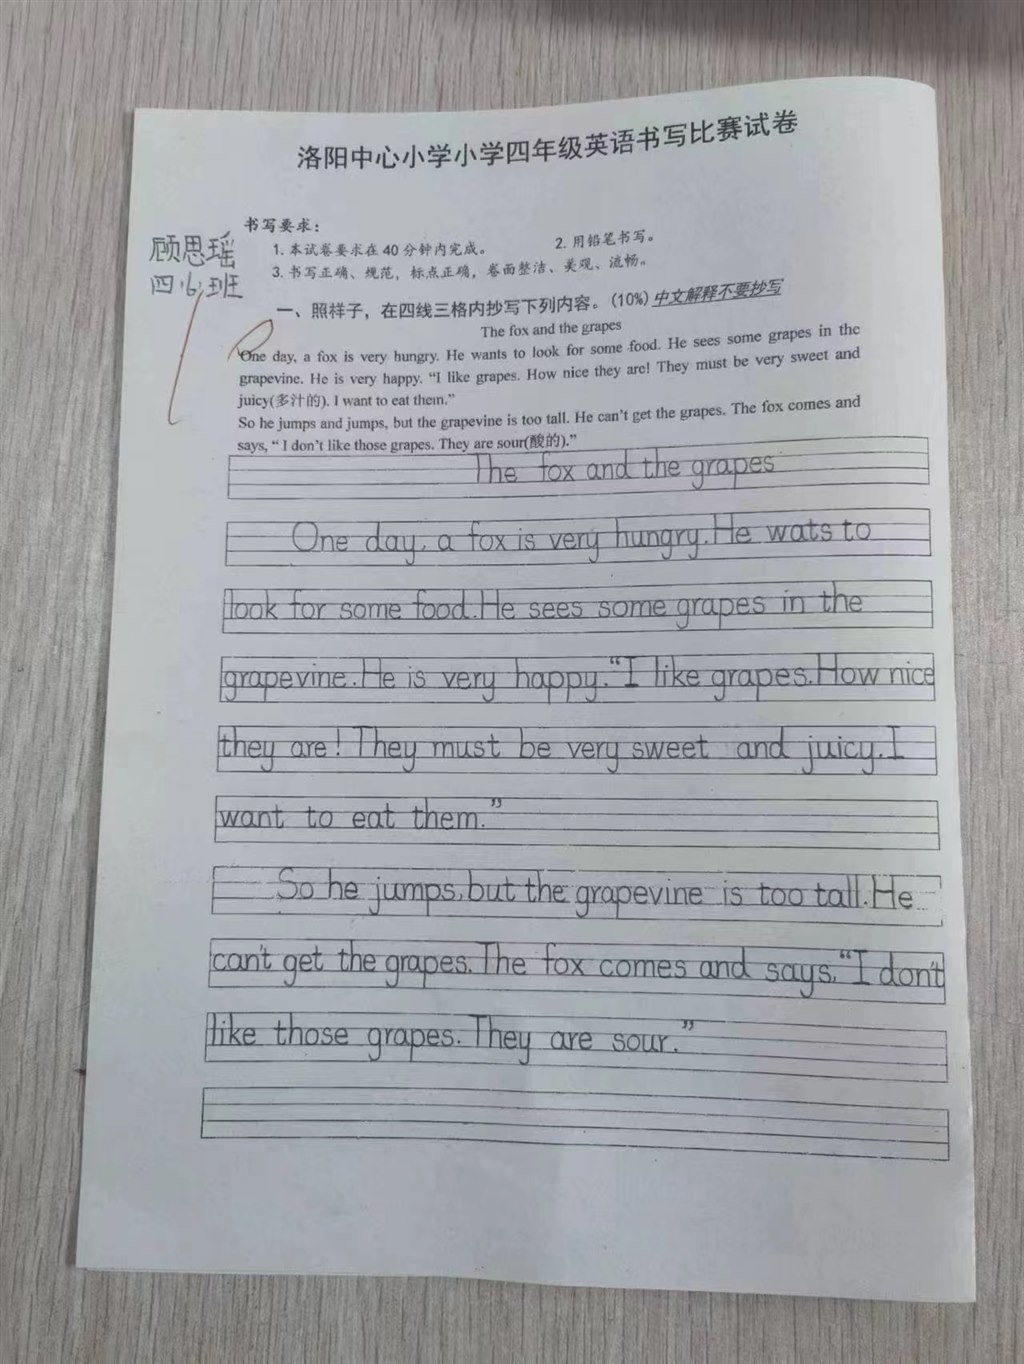 洛阳中心小学小学四年级英语书写比赛试卷
书写要求：
1. 本试卷要求在 40 分钟内完成。 2. 用铅笔书写。
3. 书写正确、规范，标点正确，卷面整洁、美观、流畅。
顾思瑶
四(6)班
一、照样子，在四线三格内抄写下列内容。(10%) 中文解释不要抄写
The fox and the grapes
One day, a fox is very hungry. He wants to look for some food. He sees some grapes in the
grapevine. He is very happy. “I like grapes. How nice they are! They must be very sweet and
juicy(多汁的). I want to eat them.”
So he jumps and jumps, but the grapevine is too tall. He can’t get the grapes. The fox comes and
says, “ I don’t like those grapes. They are sour(酸的).”
The fox and the grapes
One day, a fox is very hungry. He wats to
look for some food. He sees some grapes in the
grapevine. He is very happy. “I like grapes. How nice
they are! They must be very sweet and juicy. I
want to eat them.”
So he jumps, but the grapevine is too tall. He
can't get the grapes. The fox comes and says, “I don't
like those grapes. They are sour.”